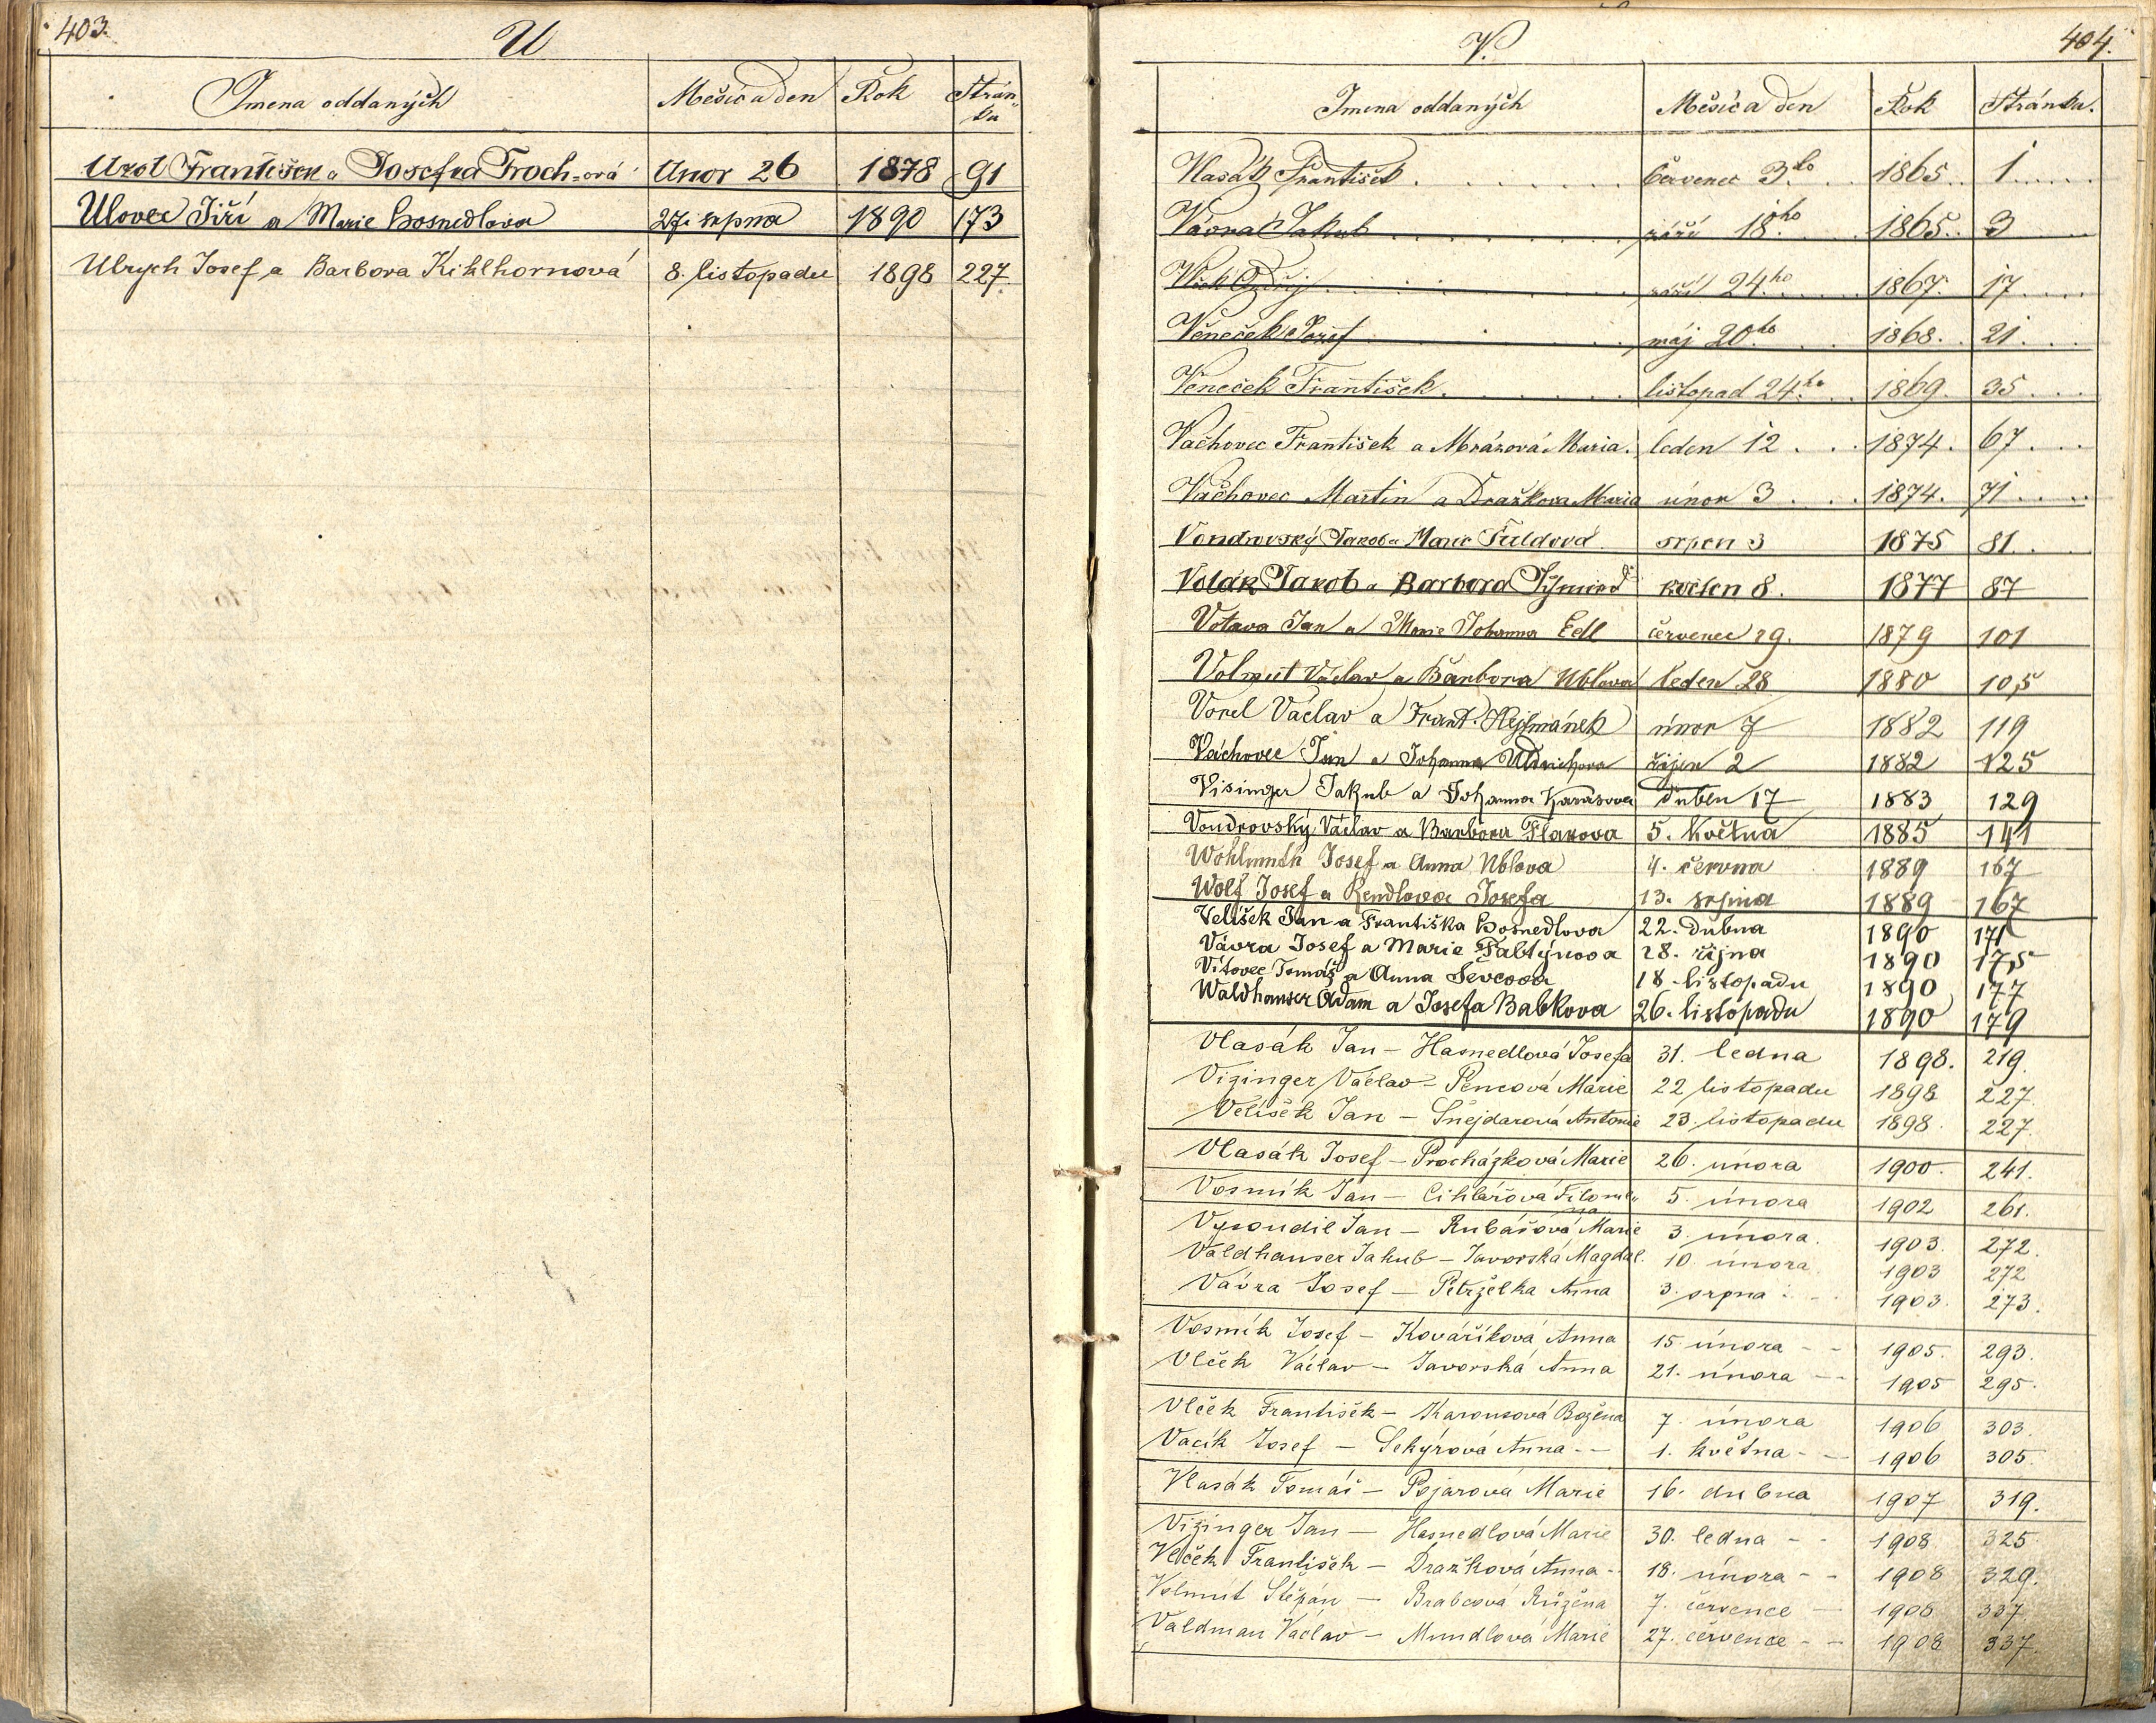 403.
U
Jmena oddaných Měsíc a den Rok Strán-
ka
František a Josefka Froch-ová Unor 26 1878 91
Ulovec Jiří a Marie Hosnedlova 27. srpna 1890 173
Ulrych Josef a Barbora Kihlhornová 8. listopadu 1898 227.
404.
V.
Jmena oddaných Měsíc a den Rok Stránka.
Vlasák František červenec 3ho 1865. 1
Vávra Jakub září 18ho 1865. 3
září 24ho 1867. 17
Věneček Josef máj 20ho 1868. 21
Věneček František listopad 24ho 1869. 35
Vachovec František a Mrázová Maria. leden 12 1874. 67
Vachovec Martin a Dražkova Maria únor 3 1874. 71
Vondrovský Jakob a Marie Fuldová srpen 3 1875 81
Volák Jakob a Barbora květen 8. 1877 87
Votava Jan a Marie Johanna Edl červenec 29. 1879 101
Volmut Václav a Barbora Ublova leden 28 1880 105
Vorel Václav a Frant. Hejsmánek únor 7 1882 119
Váchovec Jan a Johanna Uldrichova říjen 2 1882 125
Visinger Jakub a Johanna Karasova duben 17 1883 129
Vondrovský Václav a Barbora Flaxova 5. května 1885 141
Wohlmuth Josef a Anna Ublova 4. června 1889 167
Wolf Josef a Rendlova Josefa 13. srpna 1889 167
Velíšek Jan a Františka Hosnedlova 22. dubna 1890 171
Vávra Josef a Marie Faltýnova 28. října 1890 175
Vítovec Tomáš a Anna Ševcova 18. listopadu 1890 177
Waldhauser Adam a Josefa Babkova 26. listopadu 1890 179
Vlasák Jan - Hasnedlová Josefa 31. ledna 1898. 219.
Vizinger Václav - Pencová Marie 22 listopadu 1898 227.
Velíšek Jan - Šnejdarová Antonie 23. listopadu 1898. 227.
Vlasák Josef - Procházková Marie 26. února 1900. 241.
Vosmík Jan - Cihlářová Filome- 5. února 1902 261.
na
Vysoudil Jan - Rubášová Marie 3. února. 1903. 272.
Valdhauser Jakub - Javorská Magdal. 10. února. 1903 272
Vávra Josef - Petrželka Anna 3. srpna 1903. 273.
Vosmík Josef - Kováříková Anna 15. února - - 1905. 293.
Vlček Václav - Javorská Anna 21. února - - 1905 295.
Vlček František - Karousová Božena 7. února 1906 303.
Vacík Josef - Sekýrová Anna - - 1. května - - 1906 305.
Vlasák Tomáš - Pojarová Marie 16. dubna 1907 319.
Vizinger Jan - Hasnedlová Marie 30. ledna - - 1908 325.
Vlček František - Dražková Anna - 18. února - - 1908 329.
Volmut Štěpán - Brabcová Růžena 7. července - 1908 337
Valdman Václav - Mundlová Marie 27. července - - 1908 337.